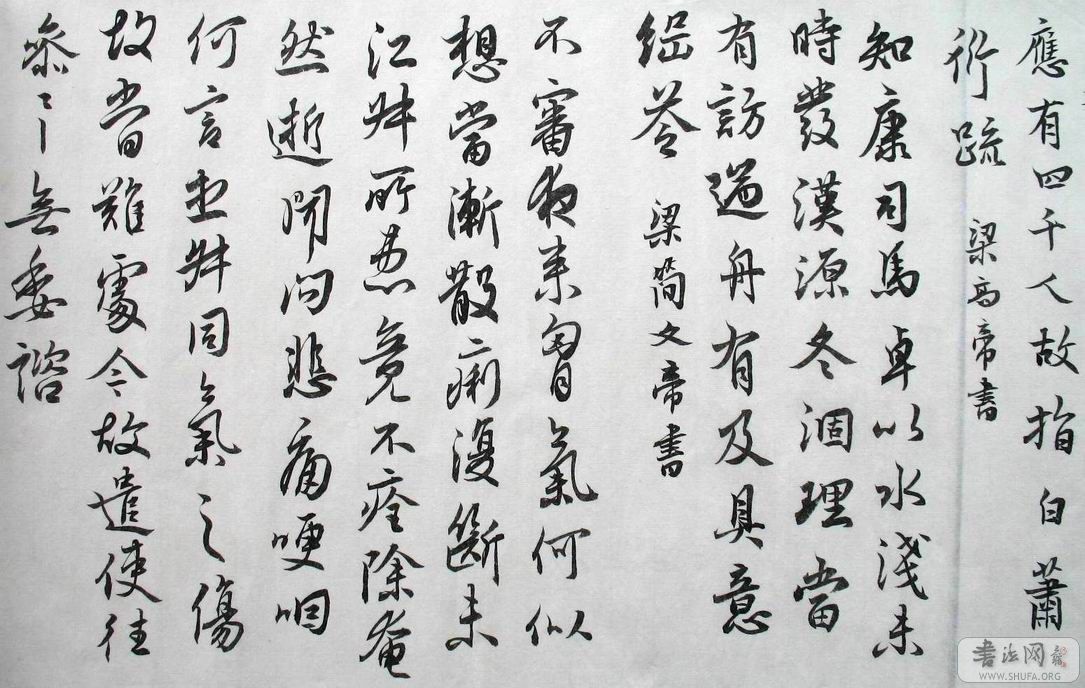 應有四千人故指白蕭
衍疏 梁高帝書
知康司馬卓以水淺未
時發漢源冬涸理當
有訪過舟有及具意
經答 梁簡文帝書
不審夜來胷氣何似
想當漸散痢復斷未
江舛所患竟不痊除奄
然逝聞問悲痛哽咽
何言舛同氣之傷
故當難處今故遣使往
參〻無委諮
書法网
WWW.SHUFA.ORG